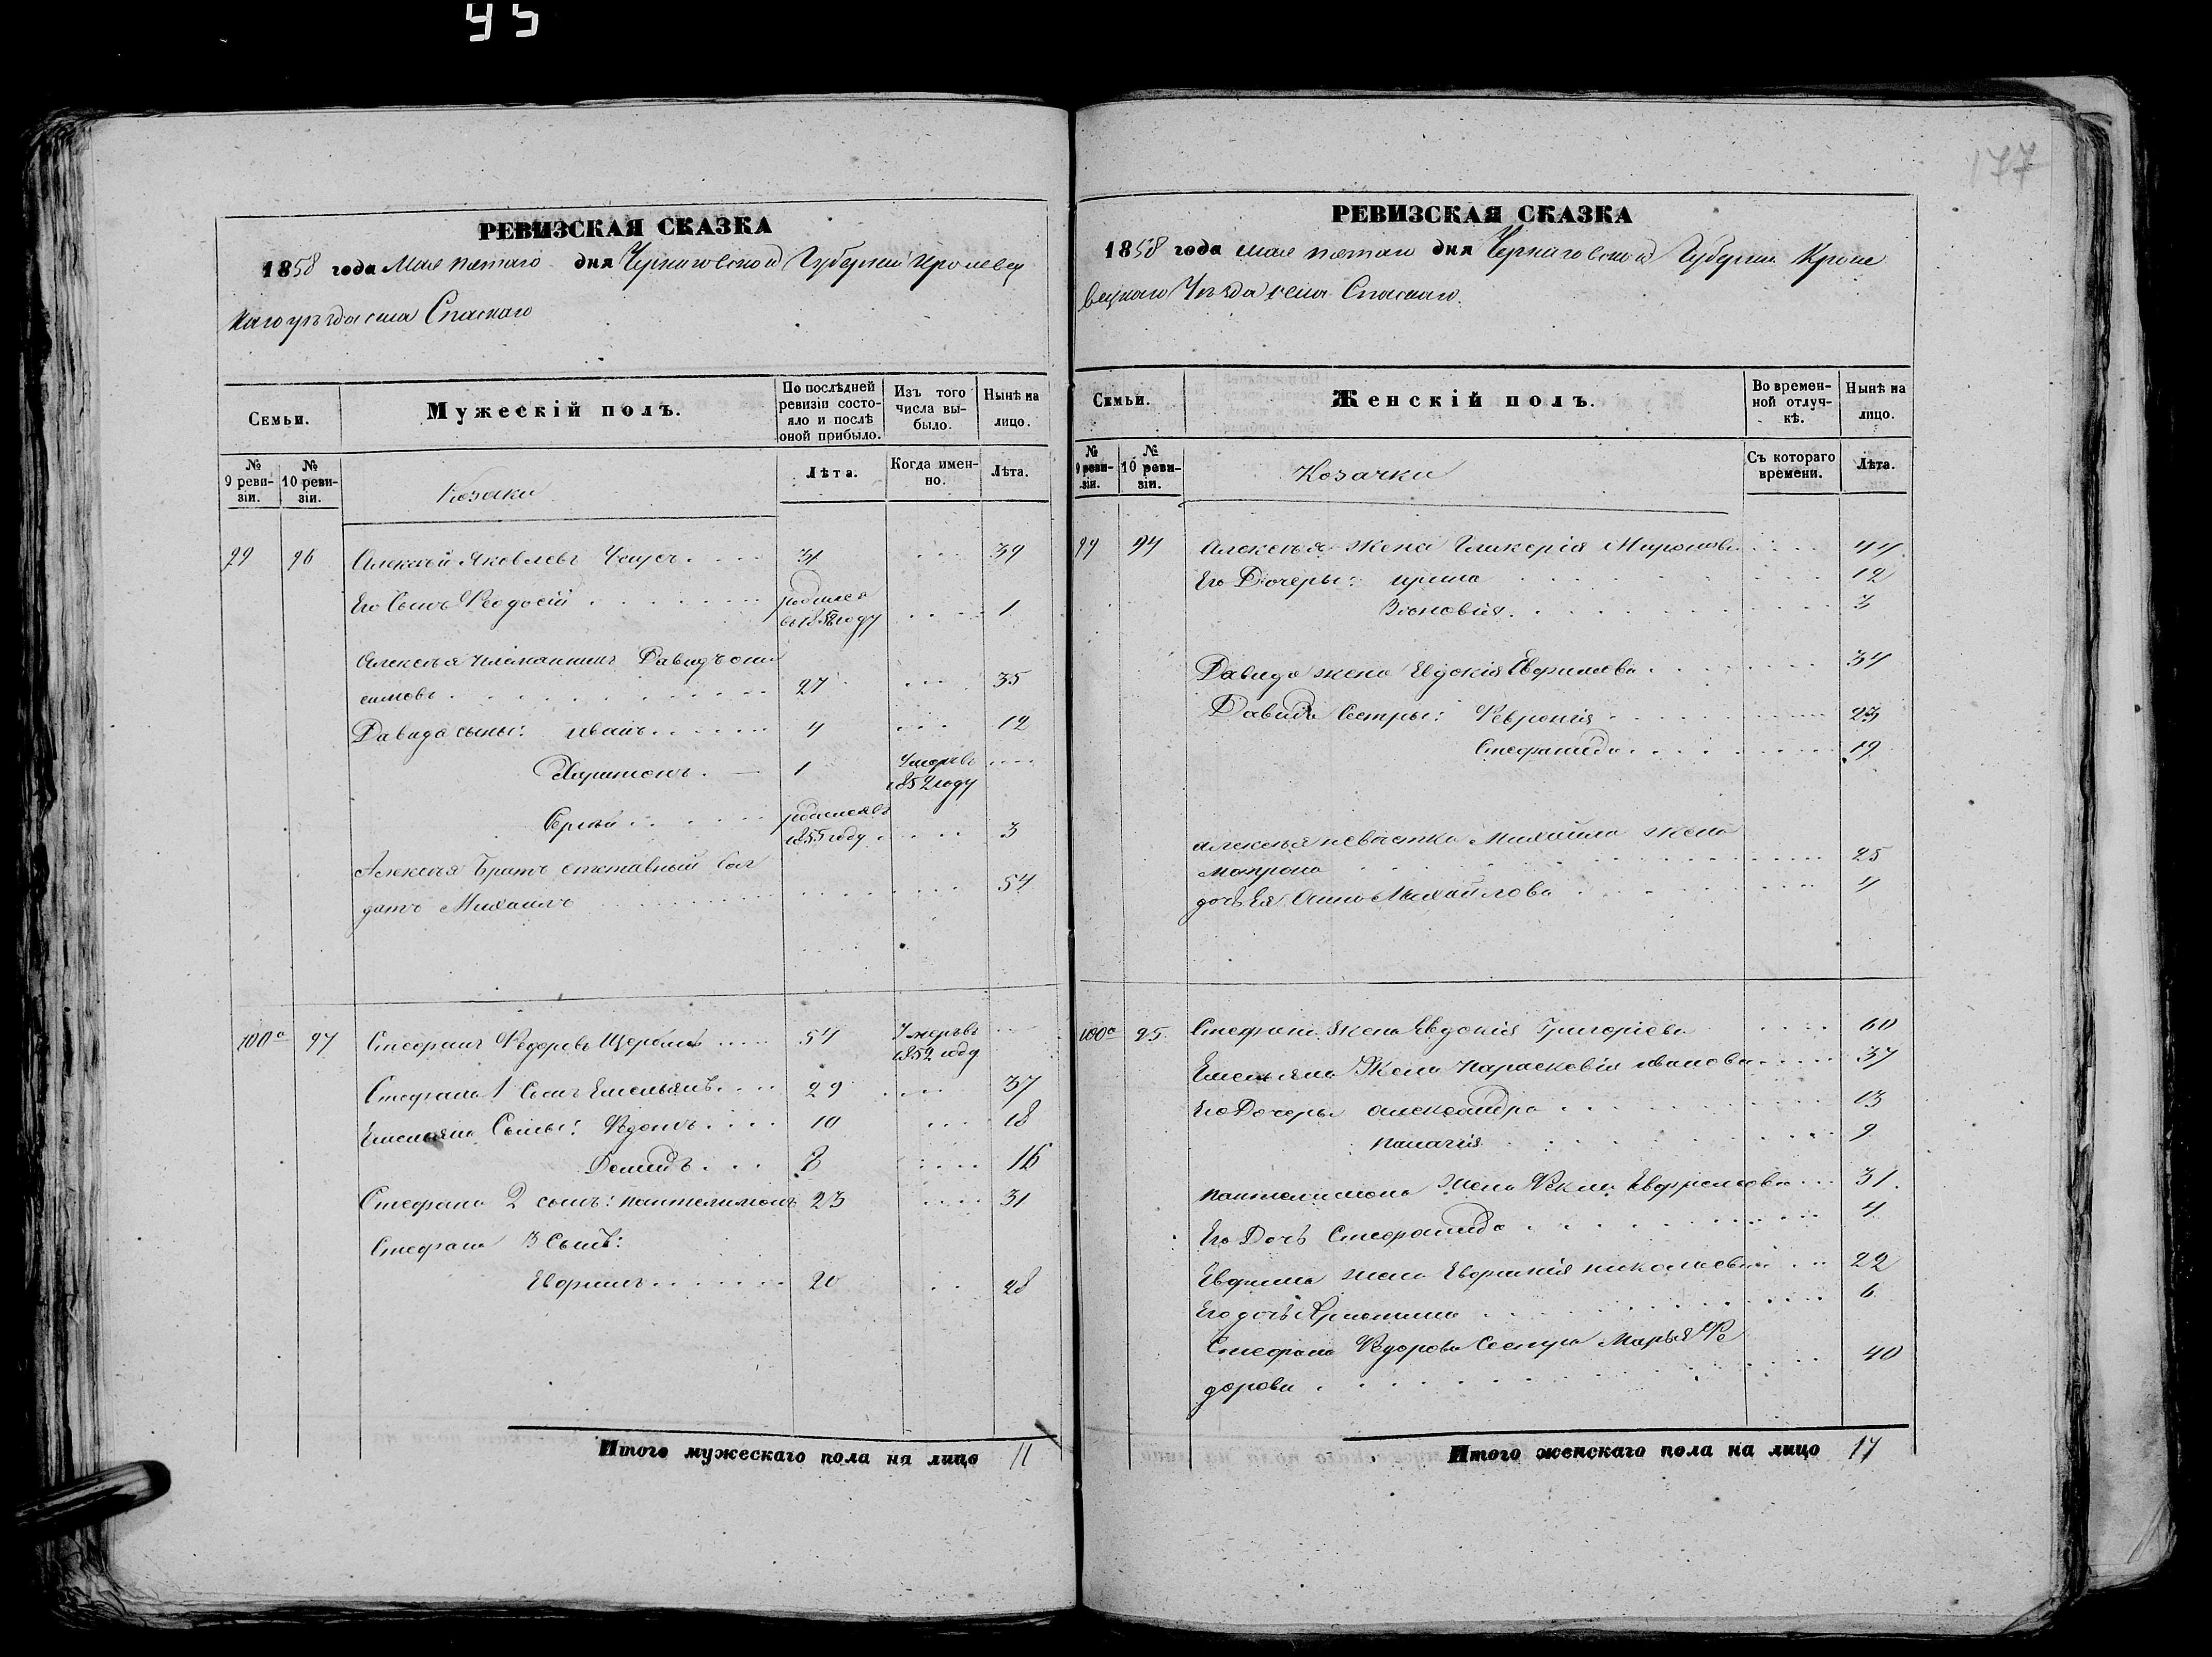 95
177
РЕВИЗСКАЯ СКАЗКА
1858 года Мая пятаго дня Черниговской Губернии Кролевец
каго уезда села Спаскаго
Семьи.
Мужескій полъ.
По послѣдней ревизіи состояло и послѣ оной прибыло.
Изъ того числа выбыло.
Нынѣ на лицо.
№ 9 ревизіи.
№ 10 ревизіи.
Козаки
Лѣта.
Когда именно.
Лѣта.
99 96 Алексѣй Яковлевъ 31 39
Его Сынъ Феодосій родился в 1858 году 1
Алексѣя племянник Давидъ они
симовъ 27 35
Давида сыны: иванъ 4 12
Харитонъ 1 Умеръ в 1852 году
Сергѣй родился в 1855 году 3
Алексѣя Братъ отставный Сол
датъ Михаилъ 54
100а 97 Стефанъ Федоровъ 54 Умеръ в 1852 году
Стефана 1 Сынъ Емельянъ 29 37
Емельяна Сыны: 10 18
Демидъ 8 16
Стефана 2 сынъ: пантелимонъ 23 31
Стефана 3 Сынъ:
Евфимъ 20 28
Итого мужескаго пола на лицо 11
РЕВИЗСКАЯ СКАЗКА
1858 года мая пятаго дня Черниговской Губернии Кроле
вецкаго Уѣзда села Спаскаго.
Семьи.
Женскій полъ.
Во временной отлучкѣ.
Нынѣ на лицо.
№ 9 ревизіи.
№ 10 ревизіи.
Козачки
Съ котораго времени.
Лѣта.
99 94 Алексѣя жена Гликерія Миронова 44
Его Дочеры: ирина 12
Зѣновія 3
Давида жена Евдокія Евфимова 34
Давида Сестры: Февронія 23
Стефанида 19
алексѣя невѣстка Михайла жена
матрона 25
дочь Ея Анна Михайлова 4
100а 95 Стефана жена Евдокія Григоріева 60
Емельяна Жена Парасковія иванова 37
Его Дочеры александра 13
палагія 9
пантелимона жена Фекла 31
Его Дочь Стефанида 4
Евфима жена Евфимія николаевна 22
Его дочь Христина 6
Стефана Федорова Сестра Марья Фе
дорова 40
Итого женскаго пола на лицо 17